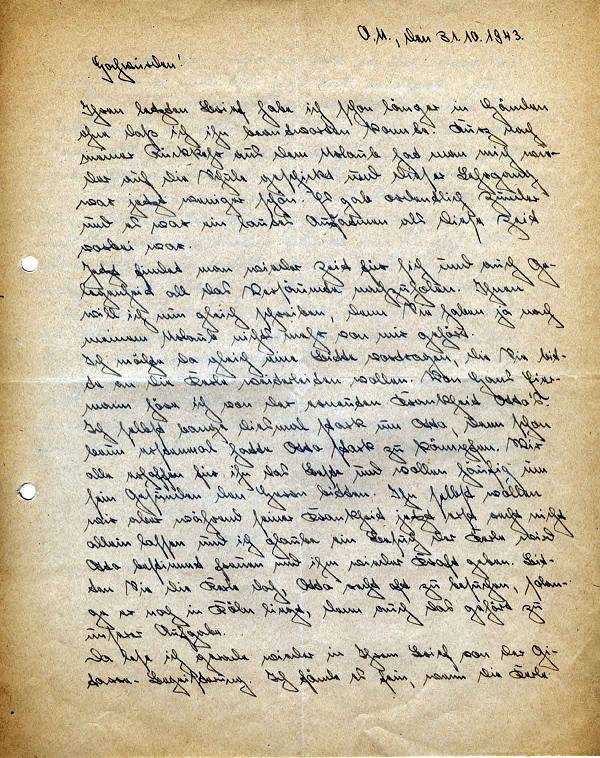 O.U., den 31.10.1943.
Hochwürden!
Ihren letzten Brief habe ich schon länger in Händen
ehe daß ich ihn beantworten konnte. Kurz nach
meiner Rückkehr aus dem Urlaub hat man mich wie-
der auf die Schule geschickt und dieser Lehrgang
war jetzt weniger schön. Es gab ordentlich Zunder
und es war ein lautes Aufatmen als diese Zeit
vorbei war.
Jetzt findet man wieder Zeit für sich und auch Ge-
legenheit all das Versäumte nachzuholen. Ihnen
will ich nun gleich schreiben, denn Sie haben ja nach
meinem Urlaub nichts mehr von mir gehört.
Ich möchte da gleich eine Bitte vortragen, die Sie bit-
te an die Kerle weiterleiten wollen. Von Hans
höre ich von der erneuten Krankheit Otto's.
Ich selbst bange diesmal stark um Otto, denn schon
beim erstenmal hatte Otto stark zu kämpfen. Wir
alle erhoffen für ihn das Beste und wollen häufig um
sein Gesunden den Herrn bitten. Ihn selbst wollen
wir aber während seiner Krankheit jetzt erst recht nicht
allein lassen und ich glaube ein Besuch der Kerle wird
Otto bestimmt freuen und ihm wieder Kraft geben. Bit-
ten Sie die Kerle doch, Otto recht oft zu besuchen, solan-
ge er noch in Köln liegt, denn auch das gehört zu
unserer Aufgabe.
Da lese ich gerade wieder in Ihrem Brief von der Gi-
tarre-Begeisterung. Ich fände es fein, wenn die Kerle